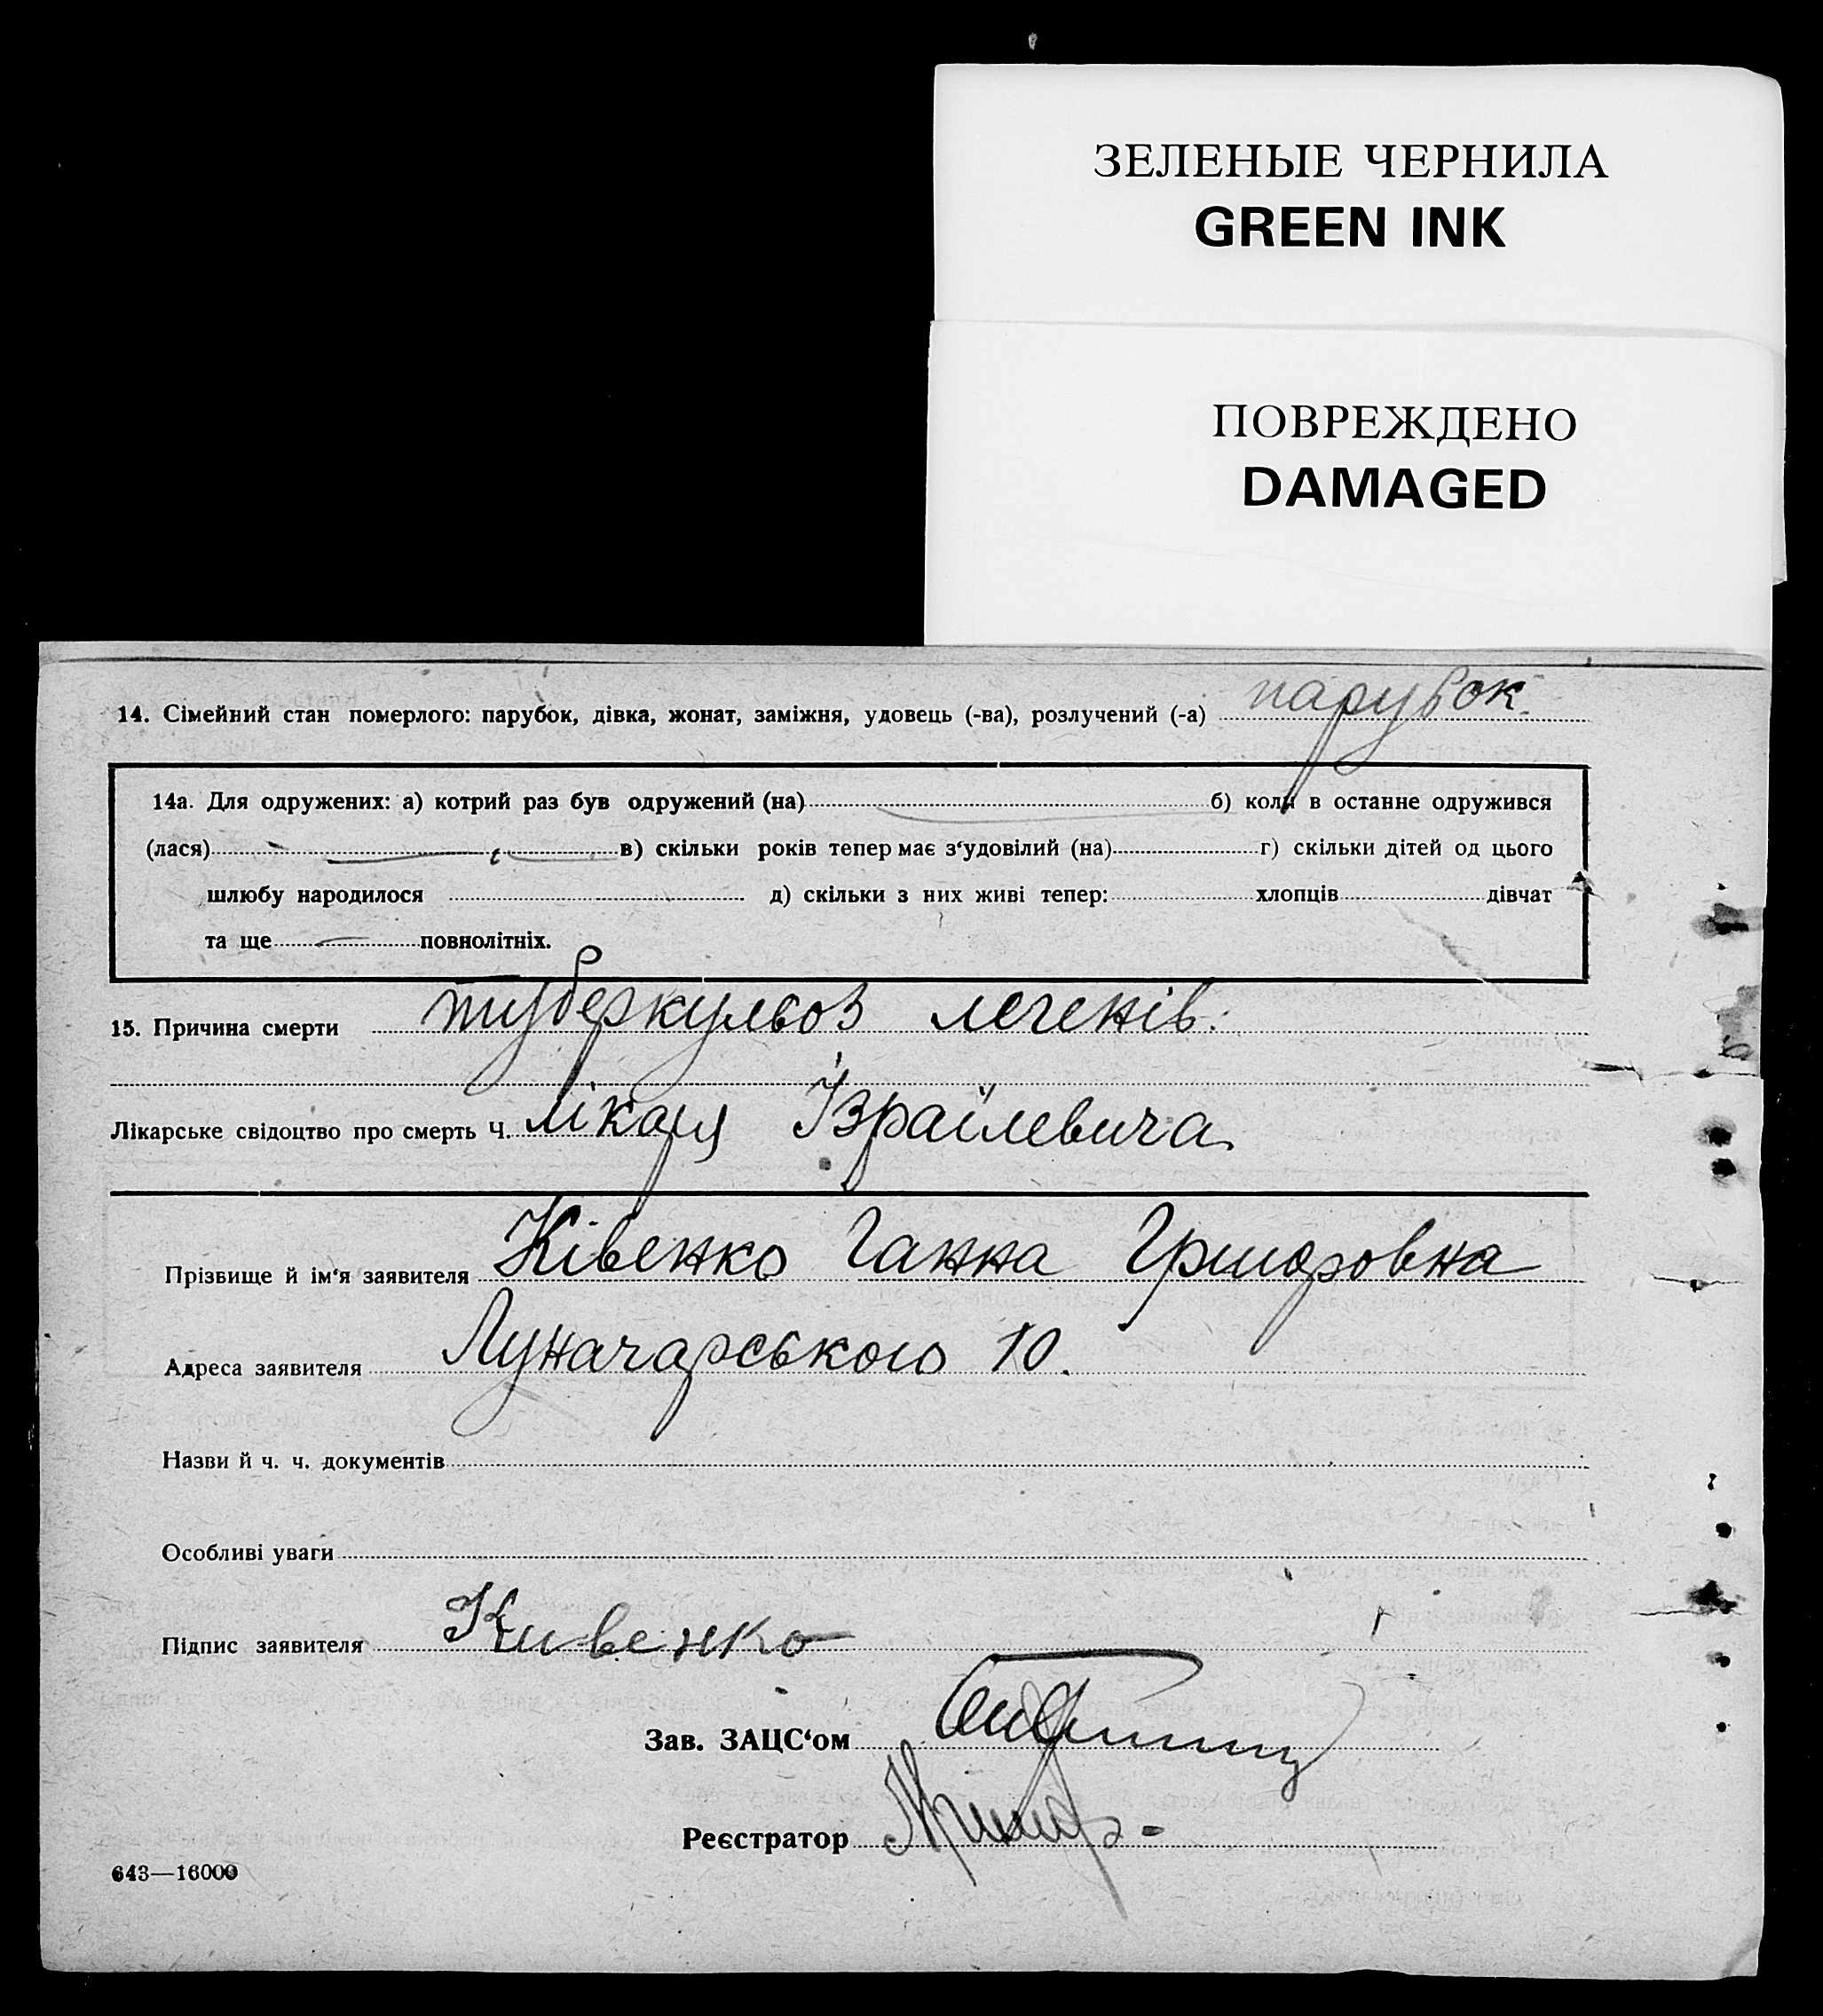 ЗЕЛЕНЫЕ ЧЕРНИЛА
GREEN INK
ПОВРЕЖДЕНО
DAMAGED
14. Сімейний стан померлого: парубок, дівка, жонат, заміжня, удовець (-ва), розлучений (-а) парубок
14а. Для одружених: а) котрий раз був одружений (на) б) коли в останне одружився
(лася) в) скільки років тепер має з‘удовілий (на) г) скільки дітей од цього
шлюбу народилося д) скільки з них живі тепер: хлопців дівчат
та ще повнолітніх.
15. Причина смерти туберкульоз легенів.
Лікарське свідоцтво про смерть Ч. лікаря Ізраїлевича
Прізвище й ім‘я заявителя Ківенко Ганна Григоровна
Адреса заявителя Луначарського 10.
Назви й ч. ч. документів
Особливі уваги
Підпис заявителя Кивенко
Зав. ЗАЦС‘ом
Реєстратор
643—16000